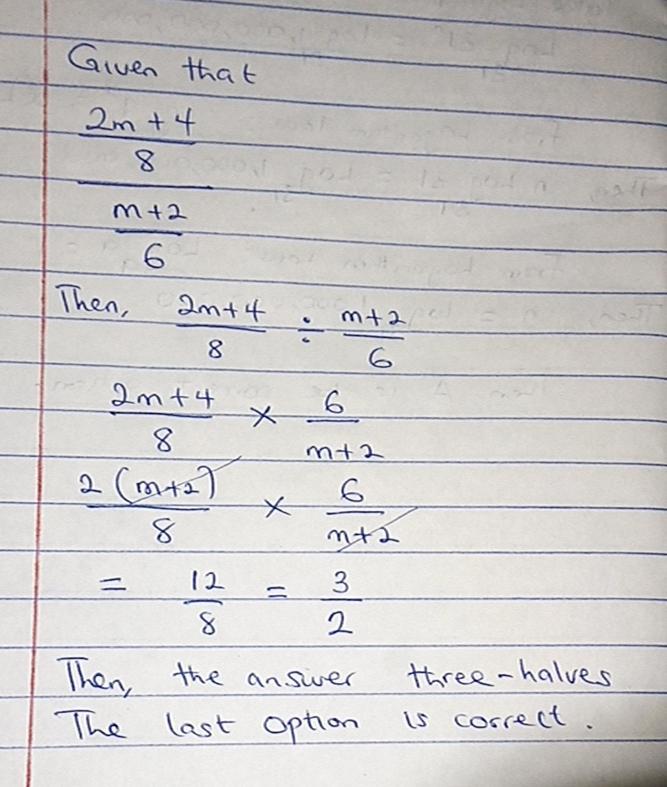 Given that
2m + 4
8
m+2
6
Then, 2m+4 ÷ m+2
8 6
2m + 4 × 6
8 m+2
2 (m+2) × 6
8 m+2
= 12 = 3
8 2
Then, the answer three-halves
The last option is correct.